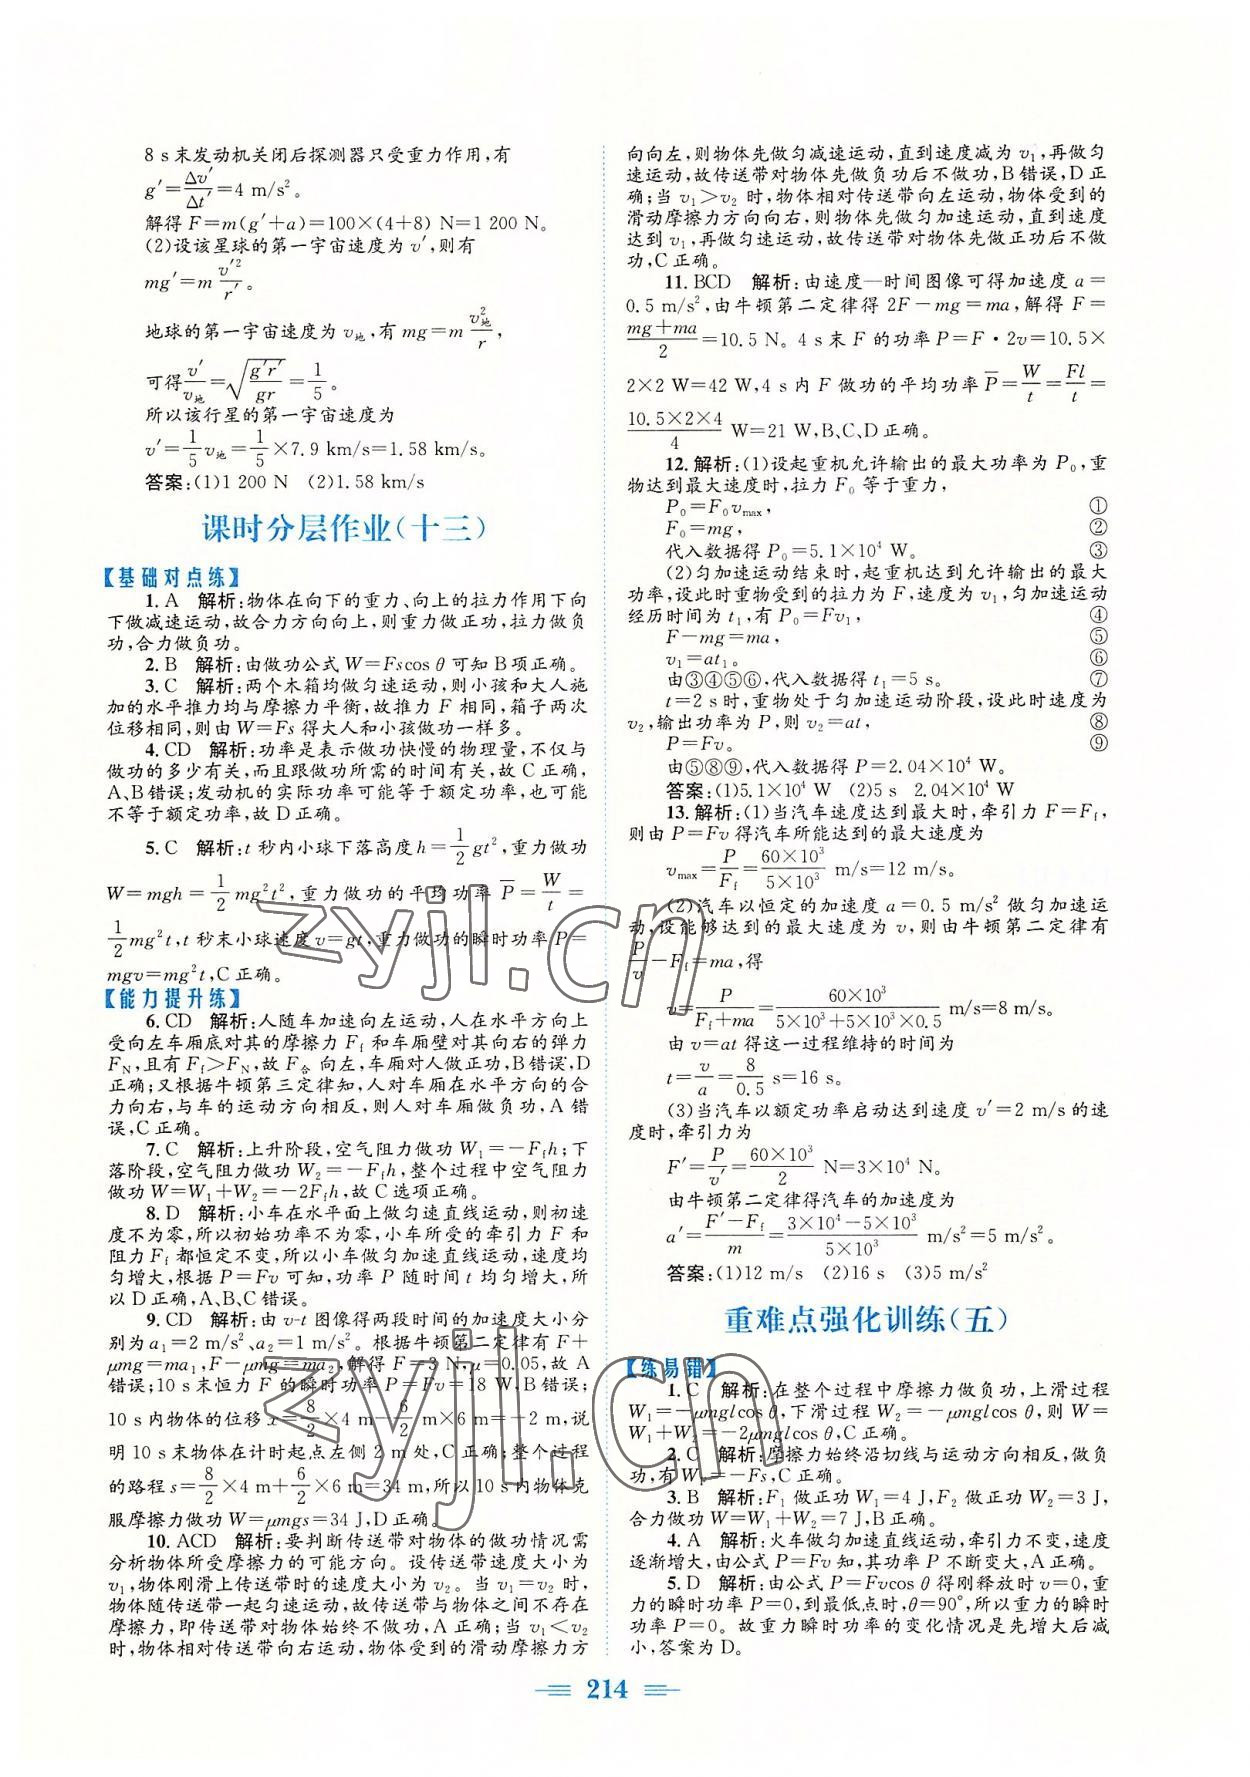 8 s末发动机关闭后探测器只受重力作用,有
g′=Δv′/Δt′=4 m/s²。
解得 F=m(g′+a)=100×(4+8) N=1 200 N。
(2)设该星球的第一宇宙速度为 v′,则有
mg′=m v′²/r′。
地球的第一宇宙速度为 v地,有 mg=m v地²/r,
可得 v′/v地=√(g′r′/gr)=1/5。
所以该行星的第一宇宙速度为
v′=1/5 v地=1/5×7.9 km/s=1.58 km/s。
答案:(1)1 200 N (2)1.58 km/s
课时分层作业(十三)
【基础对点练】
1. A 解析:物体在向下的重力、向上的拉力作用下向
下做减速运动,故合力方向向上,则重力做正功,拉力做负
功,合力做负功。
2. B 解析:由做功公式 W=Fscos θ 可知 B项正确。
3. C 解析:两个木箱均做匀速运动,则小孩和大人施
加的水平推力均与摩擦力平衡,故推力 F 相同,箱子两次
位移相同,则由 W=Fs 得大人和小孩做功一样多。
4. CD 解析:功率是表示做功快慢的物理量,不仅与
做功的多少有关,而且跟做功所需的时间有关,故 C 正确,
A、B错误;发动机的实际功率可能等于额定功率,也可能
不等于额定功率,故 D正确。
5. C 解析:t 秒内小球下落高度 h=1/2 gt²,重力做功
W=mgh=1/2 mg²t²,重力做功的平均功率 P̅=W/t=
1/2 mg²t,t 秒末小球速度 v=gt,重力做功的瞬时功率 P=
mgv=mg²t,C正确。
【能力提升练】
6. CD 解析:人随车加速向左运动,人在水平方向上
受向左车厢底对其的摩擦力 Ff 和车厢壁对其向右的弹力
FN,且有 Ff>FN,故 F合 向左,车厢对人做正功,B错误,D
正确;又根据牛顿第三定律知,人对车厢在水平方向的合
力向右,与车的运动方向相反,则人对车厢做负功,A 错
误,C正确。
7. C 解析:上升阶段,空气阻力做功 W₁=-Ffh;下
落阶段,空气阻力做功 W₂=-Ffh,整个过程中空气阻力
做功 W=W₁+W₂=-2Ffh,故 C选项正确。
8. D 解析:小车在水平面上做匀速直线运动,则初速
度不为零,所以初始功率不为零,小车所受的牵引力 F 和
阻力 Ff 都恒定不变,所以小车做匀加速直线运动,速度均
匀增大,根据 P=Fv 可知,功率 P 随时间 t 均匀增大,所
以 D正确,A、B、C错误。
9. CD 解析:由 v-t 图像得两段时间的加速度大小分
别为 a₁=2 m/s²、a₂=1 m/s²。根据牛顿第二定律有 F+
μmg=ma₁,F-μmg=ma₂,解得 F=3 N,μ=0.05,故 A
错误;10 s末恒力 F 的瞬时功率 P=Fv=18 W,B错误;
10 s内物体的位移 x=8/2×4 m-6/2 m×6 m=-2 m,说
明10 s末物体在计时起点左侧 2 m处,C正确;整个过程
的路程 s=8/2×4 m+6/2×6 m=34 m,所以10 s内物体克
服摩擦力做功 W=μmgs=34 J,D正确。
10. ACD 解析:要判断传送带对物体的做功情况需
分析物体所受摩擦力的可能方向。设传送带速度大小为
v₁,物体刚滑上传送带时的速度大小为 v₂。当 v₁=v₂ 时,
物体随传送带一起匀速运动,故传送带与物体之间不存在
摩擦力,即传送带对物体始终不做功,A正确;当 v₁<v₂
时,物体相对传送带向右运动,物体受到的滑动摩擦力方
向向左,则物体先做匀减速运动,直到速度减为 v₁,再做匀
速运动,故传送带对物体先做负功后不做功,B错误,D正
确;当 v₁>v₂ 时,物体相对传送带向左运动,物体受到的
滑动摩擦力方向向右,则物体先做匀加速运动,直到速度
达到 v₁,再做匀速运动,故传送带对物体先做正功后不做
功,C正确。
11. BCD 解析:由速度—时间图像可得加速度 a=
0.5 m/s²,由牛顿第二定律得 2F-mg=ma,解得 F=
(mg+ma)/2=10.5 N。4 s末 F 的功率 P=F·2v=10.5×
2×2 W=42 W,4 s内 F 做功的平均功率 P̅=W/t=Fl/t=
(10.5×2×4)/4 W=21 W,B、C、D正确。
12. 解析:(1)设起重机允许输出的最大功率为 P₀,重
物达到最大速度时,拉力 F₀ 等于重力,
P₀=F₀vmax, ①
F₀=mg, ②
代入数据得 P₀=5.1×10⁴ W。 ③
(2)匀加速运动结束时,起重机达到允许输出的最大
功率,设此时重物受到的拉力为 F,速度为 v₁,匀加速运动
经历时间为 t₁,有 P₀=Fv₁, ④
F-mg=ma, ⑤
v₁=at₁。 ⑥
由③④⑤⑥,代入数据得 t₁=5 s。 ⑦
t=2 s时,重物处于匀加速运动阶段,设此时速度为
v₂,输出功率为 P,则 v₂=at, ⑧
P=Fv₂。 ⑨
由⑤⑧⑨,代入数据得 P=2.04×10⁴ W。
答案:(1)5.1×10⁴ W (2)5 s 2.04×10⁴ W
13. 解析:(1)当汽车速度达到最大时,牵引力 F=Ff,
则由 P=Fv 得汽车所能达到的最大速度为
vmax=P/Ff=(60×10³)/(5×10³) m/s=12 m/s。
(2)汽车以恒定的加速度 a=0.5 m/s² 做匀加速运
动,设能够达到的最大速度为 v,则由牛顿第二定律有
P/v-Ff=ma,得
v=P/(Ff+ma)=(60×10³)/(5×10³+5×10³×0.5) m/s=8 m/s。
由 v=at 得这一过程维持的时间为
t=v/a=8/0.5 s=16 s。
(3)当汽车以额定功率启动达到速度 v′=2 m/s 的速
度时,牵引力为
F′=P/v′=(60×10³)/2 N=3×10⁴ N。
由牛顿第二定律得汽车的加速度为
a′=(F′-Ff)/m=(3×10⁴-5×10³)/(5×10³) m/s²=5 m/s²。
答案:(1)12 m/s (2)16 s (3)5 m/s²
重难点强化训练(五)
【练易错】
1. C 解析:在整个过程中摩擦力做负功,上滑过程
W₁=-μmglcos θ,下滑过程 W₂=-μmglcos θ,则 W=
W₁+W₂=-2μmglcos θ,C正确。
2. C 解析:摩擦力始终沿切线与运动方向相反,做负
功,有 W₁=-Fs,C正确。
3. B 解析:F₁ 做正功 W₁=4 J,F₂ 做正功 W₂=3 J,
合力做功 W=W₁+W₂=7 J,B正确。
4. A 解析:火车做匀加速直线运动,牵引力不变,速度
逐渐增大,由公式 P=Fv 知,其功率 P 不断变大,A正确。
5. D 解析:由公式 P=Fvcos θ 得刚释放时 v=0,重
力的瞬时功率 P=0,到最低点时,θ=90°,所以重力的瞬时
功率 P=0。故重力瞬时功率的变化情况是先增大后减
小,答案为 D。
214
zyjl.cn
zyjl.cn